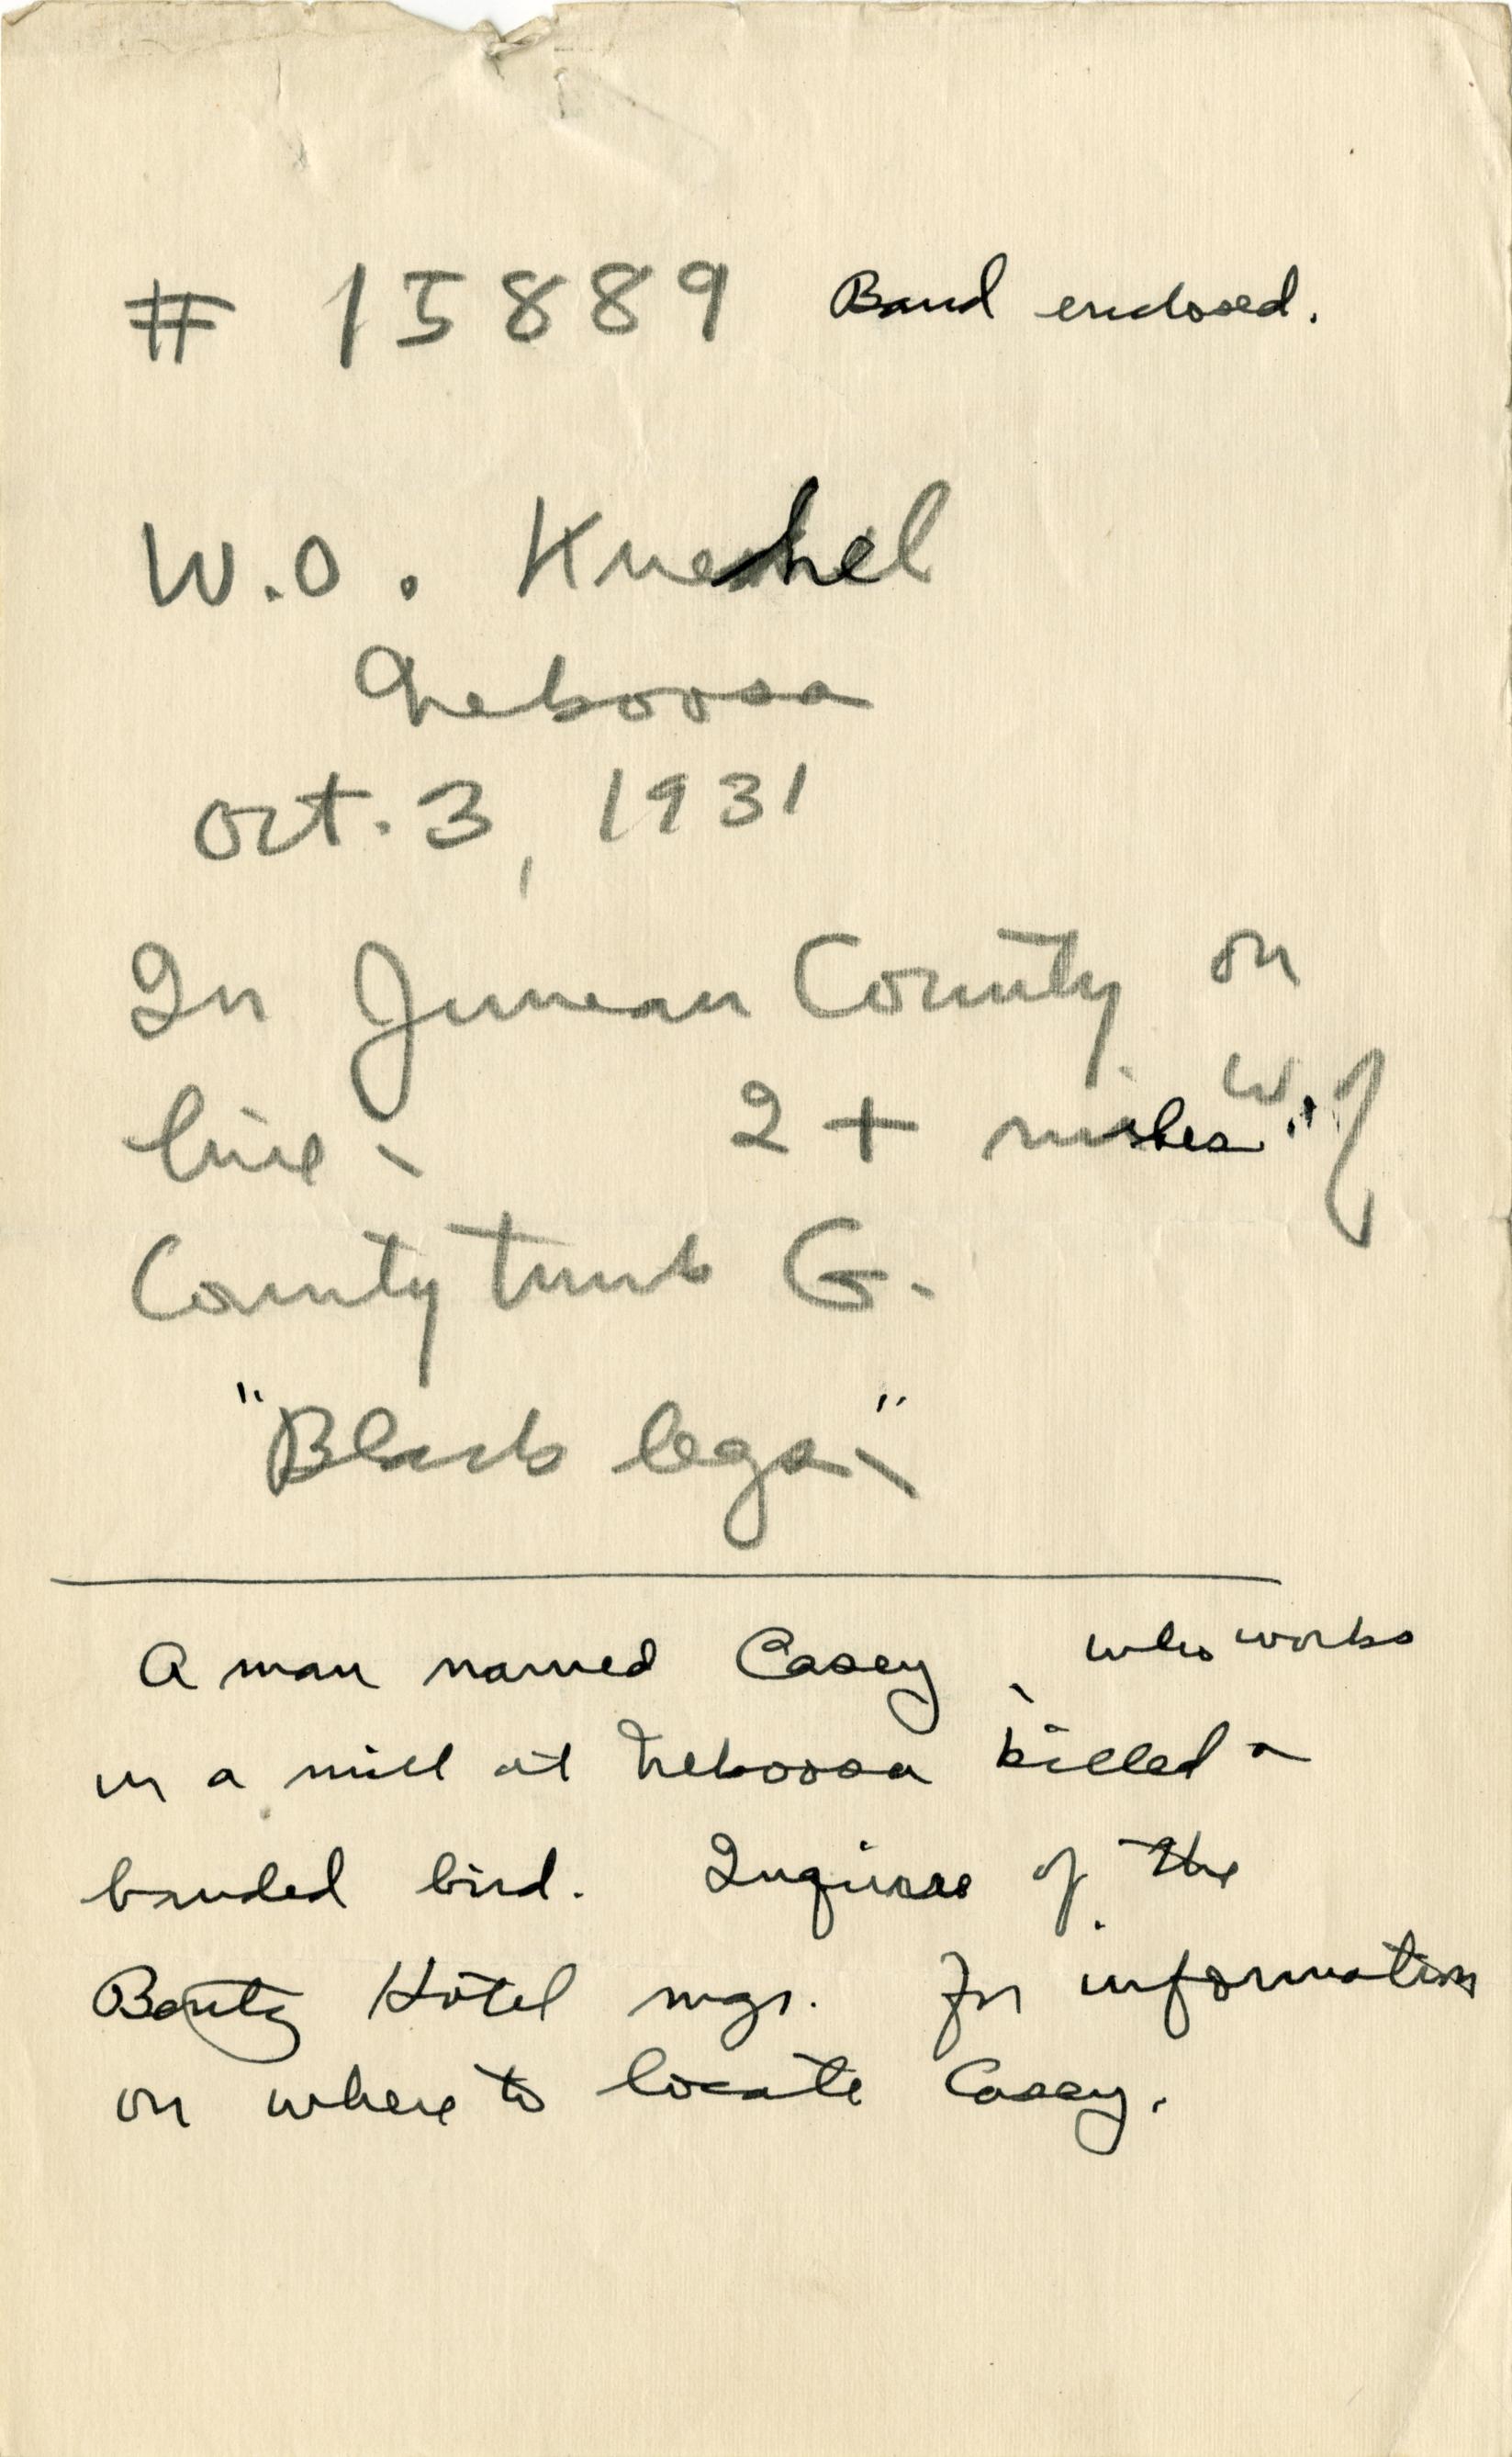 # 15889 Band enclosed.
W.O. Kuechel
Nekoosa
Oct. 3, 1931
In Juneau County on
line - 2 + miles W. of
County trunk G.
"Black legs"
A man named Casey, who works
in a mill at Nekoosa killed a
banded bird. Inquire of the
Hotel mgr. for information
on where to locate Casey.